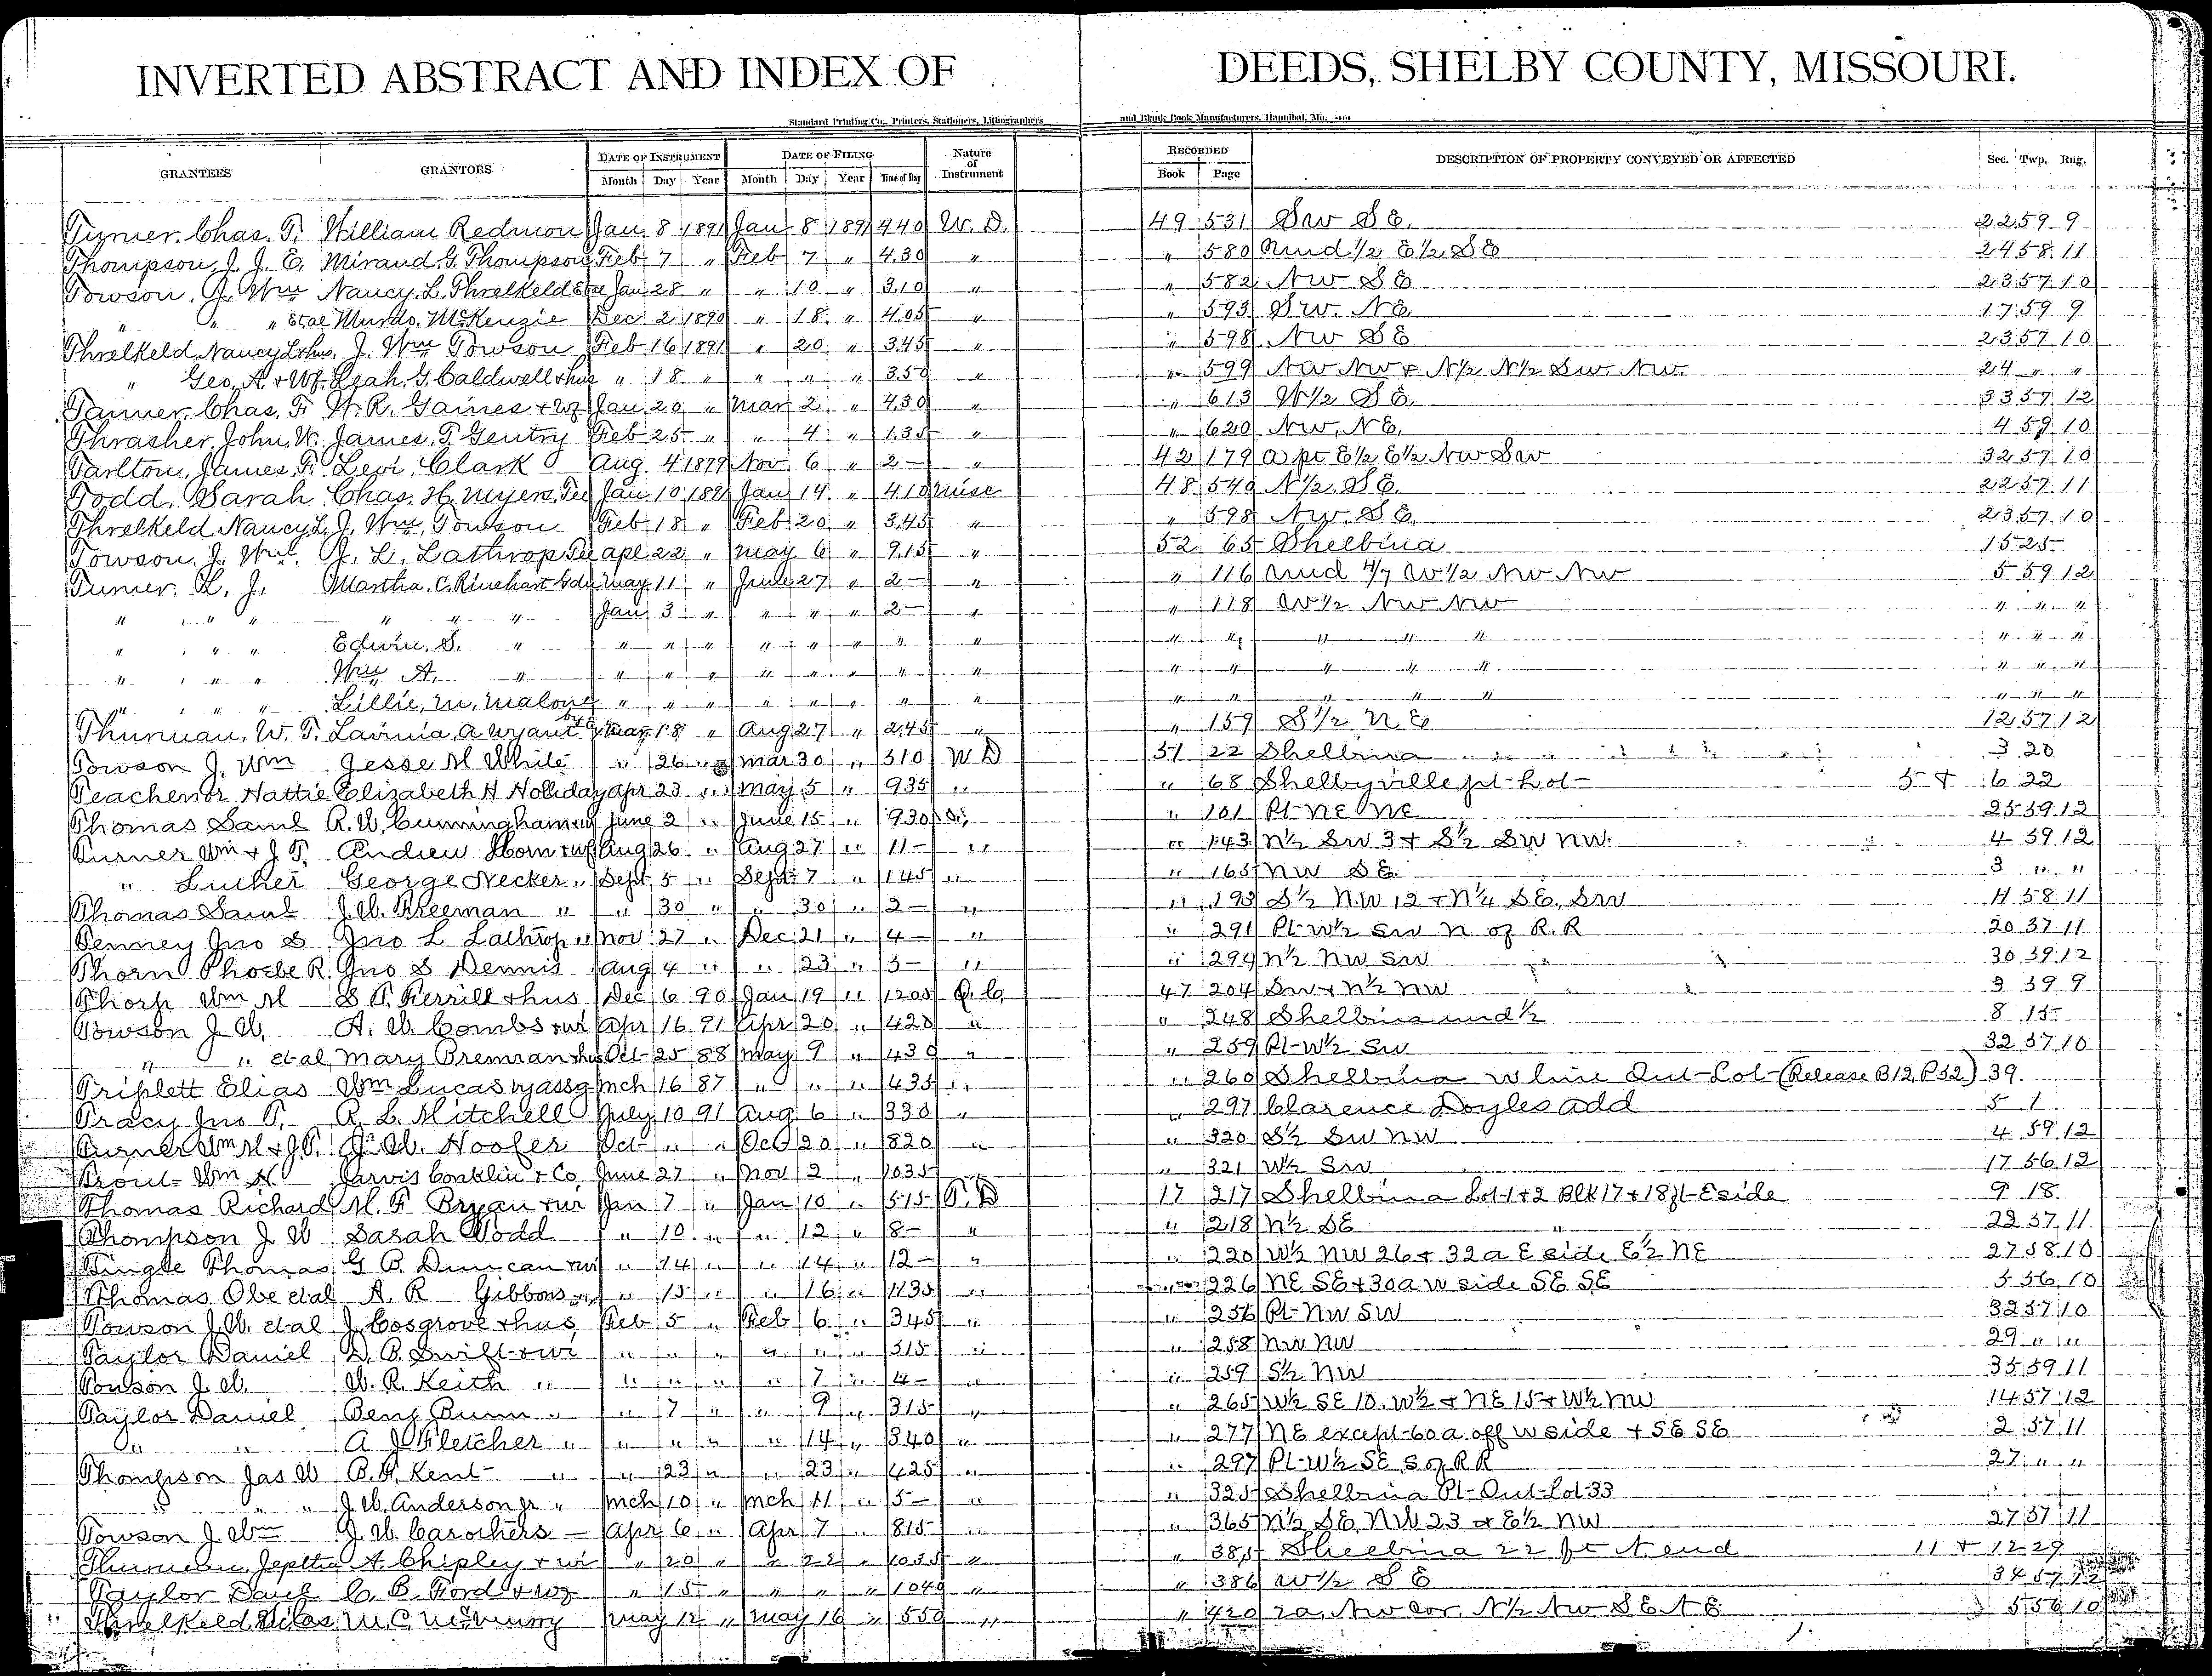 INVERTED ABSTRACT AND INDEX OF DEEDS, SHELBY COUNTY, MISSOURI.
Standard Printing Co., Printers, Stationers, Lithographers and Blank Book Manufacturers, Hannibal, Mo.
GRANTEES GRANTORS DATE OF INSTRUMENT DATE OF FILING Nature of Instrument RECORDED DESCRIPTION OF PROPERTY CONVEYED OR AFFECTED Sec. Twp. Rng.
Month Day Year Month Day Year Time of Day Book Page
Turner, Chas. T. William Redmon Jan 8 1891 Jan 8 1891 440 W. D. 49 531 SW SE. 22 59 9
Thompson, J. J. E. Mirand. G. Thompson Feb 7 " Feb 7 " 430 " " 580 Und 1/2 E 1/2 SE 24 58 11
Towson, J. Wm Nancy. L. Threlkeld Jan 28 " " 10 " 310 " " 582 NW SE 23 57 10
" " " et al Murdo. McKenzie Dec 2 1890 " 18 " 405 " " 593 SW. NE 17 59 9
Threlkeld, Nancy L + hus. J. Wm Towson Feb 16 1891 " 20 " 345 " " 598 NW SE 23 57 10
" Geo. A. + Wf. Leah. G. Caldwell + hus " 18 " " " " 350 " " 599 NW NW + N 1/2 N 1/2 SW NW. 24 " "
Tanner, Chas. F. W. R. Gaines + wf Jan 20 " Mar 2 " 430 " " 613 W 1/2 SE. 33 57 12
Thrasher, John. W. James. T. Gentry Feb 25 " " 4 " 135 " " 620 NW. NE. 4 59 10
Tarlton, James. F. Levi Clark Aug. 4 1879 Nov 6 " 2 - " 42 179 a pt E 1/2 E 1/2 NW SW 32 57 10
Todd, Sarah Chas. H. Myers, Tee Jan 10 1891 Jan 14 " 410 Misc 48 540 N 1/2 SE. 22 57 11
Threlkeld, Nancy L. J. Wm. Towson Feb 18 " Feb 20 " 345 " " 598 NW. SE. 23 57 10
Towson, J. Wm. J. L. Lathrop Tee Apl 22 " May 6 " 915 " 52 65 Shelbina 15 25
Turner, L. J. Martha. C. Rinehart May 11 " June 27 " 2 - " " 116 Und 4/7 W 1/2 NW NW 5 59 12
" " " " " Jan 3 " " " " 2 - " " 118 W 1/2 NW NW " " "
" " " Edwin. S. " " " " " " " " " " " " " " " " "
" " " Wm A. " " " " " " " " " " " " " " " " "
" " " Lillie. M. Malone " " " " " " " " " " " " " " " "
Thurman, W. T. Lavinia. A. Wyant May 18 " Aug 27 " 245 " " 159 S 1/2 NE 12 57 12
Towson J. Wm Jesse M White " 26 " Mar 30 " 310 WD 51 22 Shelbina 3 20
Teachenor Hattie Elizabeth H Holliday Apr 23 " May 5 " 935 " " 68 Shelbyville pt Lot 5 + 6 22
Thomas Saml R. W. Cunningham June 2 " June 15 " 930 " " 101 Pt NE NE 25 59 12
Turner Wm + J T. Andrew Horn + wf Aug 26 " Aug 27 " 11 - " " 143 N 1/2 SW 3 + S 1/2 SW NW. 4 59 12
" Luther George Necker " Sept 5 " Sept 7 " 145 " " 165 NW SE 3 " "
Thomas Saml J. W. Freeman " " 30 " " 30 " 2 - " " 193 S 1/2 NW 12 + N 1/4 SE. SW 11 58 11
Tenney Jno S Jno L Lathrop " Nov 27 " Dec 21 " 4 - " " 291 Pt W 1/2 SW N of R. R 20 57 11
Thorn Phoebe R. Jno S Dennis Aug 4 " " 23 " 3 - " " 299 N 1/2 NW SW 30 59 12
Thorp Wm M S. T. Perrill + hus Dec 6 90 Jan 19 " 1205 Q. C. 47 204 SW + N 1/2 NW 3 59 9
Towson J W. A. W. Combs + wi Apr 16 91 Apr 20 " 420 " " 248 Shelbina und 1/2 8 15
" " et al Mary Brennan + hus Oct 25 88 May 9 " 430 " " 259 Pt W 1/2 SW 32 57 10
Triplett Elias Wm Lucas by assg Mch 16 87 " " " 435 " " 260 Shelbina W line Out Lot (Release B12, P52) 39
Tracy Jno T. R. L. Mitchell July 10 91 Aug 6 " 330 " " 297 Clarence Doyles add 5 1
Turner Wm M + J. T. J. W. Hoofer Oct " " Oct 20 " 820 " " 320 S 1/2 SW NW 4 59 12
Trout Wm H. Jarvis Conklin + Co June 27 " Nov 2 " 1035 " " 321 W 1/2 SW 17 56 12
Thomas Richard M. F. Bryan + wi Jan 7 " Jan 10 " 515 T. D 17 217 Shelbina Lot 1 + 2 Blk 17 + 18 pt E side 9 18
Thompson J W Sarah Todd " 10 " " 12 " 8 - " " 218 N 1/2 SE 22 57 11
Tingle Thomas G. B. Duncan + wi " 14 " " 14 " 12 - " " 220 W 1/2 NW 26 + 32 a E side E 1/2 NE 27 58 10
Thomas Obe et al A. R Gibbons " 15 " " 16 " 1135 " " 226 NE SE + 30 a W side SE SE 5 56 10
Towson J. W. et al J. Cosgrove + hus Feb 5 " Feb 6 " 345 " " 256 Pt NW SW 32 57 10
Taylor Daniel D. P. Swift + wi " " " " " " 515 " " 258 NW NW 29 " "
Towson J. W. W. R. Keith " " " " " 7 " 4 - " " 259 S 1/2 NW 35 59 11
Taylor Daniel Benj Bunn " " 7 " " 9 " 315 " " 265 W 1/2 SE 10. W 1/2 + NE 15 + W 1/2 NW 14 57 12
" " A J Fletcher " " " " " 14 " 340 " " 277 NE except 60 a off W side + SE SE 2 57 11
Thompson Jas W B. F. Kent " " 23 " " 23 " 425 " " 297 Pt W 1/2 SE S of R R 27 " "
" " " J. W. Anderson Jr " Mch 10 " Mch 11 " 5 - " " 325 Shelbina Pt Out Lot 33
Towson J. Wm J. W Carothers - Apr 6 " Apr 7 " 815 " " 365 N 1/2 SE NW 23 + E 1/2 NW 27 57 11
Thurman, Jeptha A. Chipley + wi " 20 " " 22 " 1035 " " 385 Shelbina 22 ft N. end 11 + 12 29
Taylor Danl C. B. Ford + wf " 15 " " " " 1040 " " 386 W 1/2 SE 34 57 12
Threlkeld May 12 " May 16 " 550 " " 420 2 a, NW Cor. N 1/2 NW SE NE 5 56 10